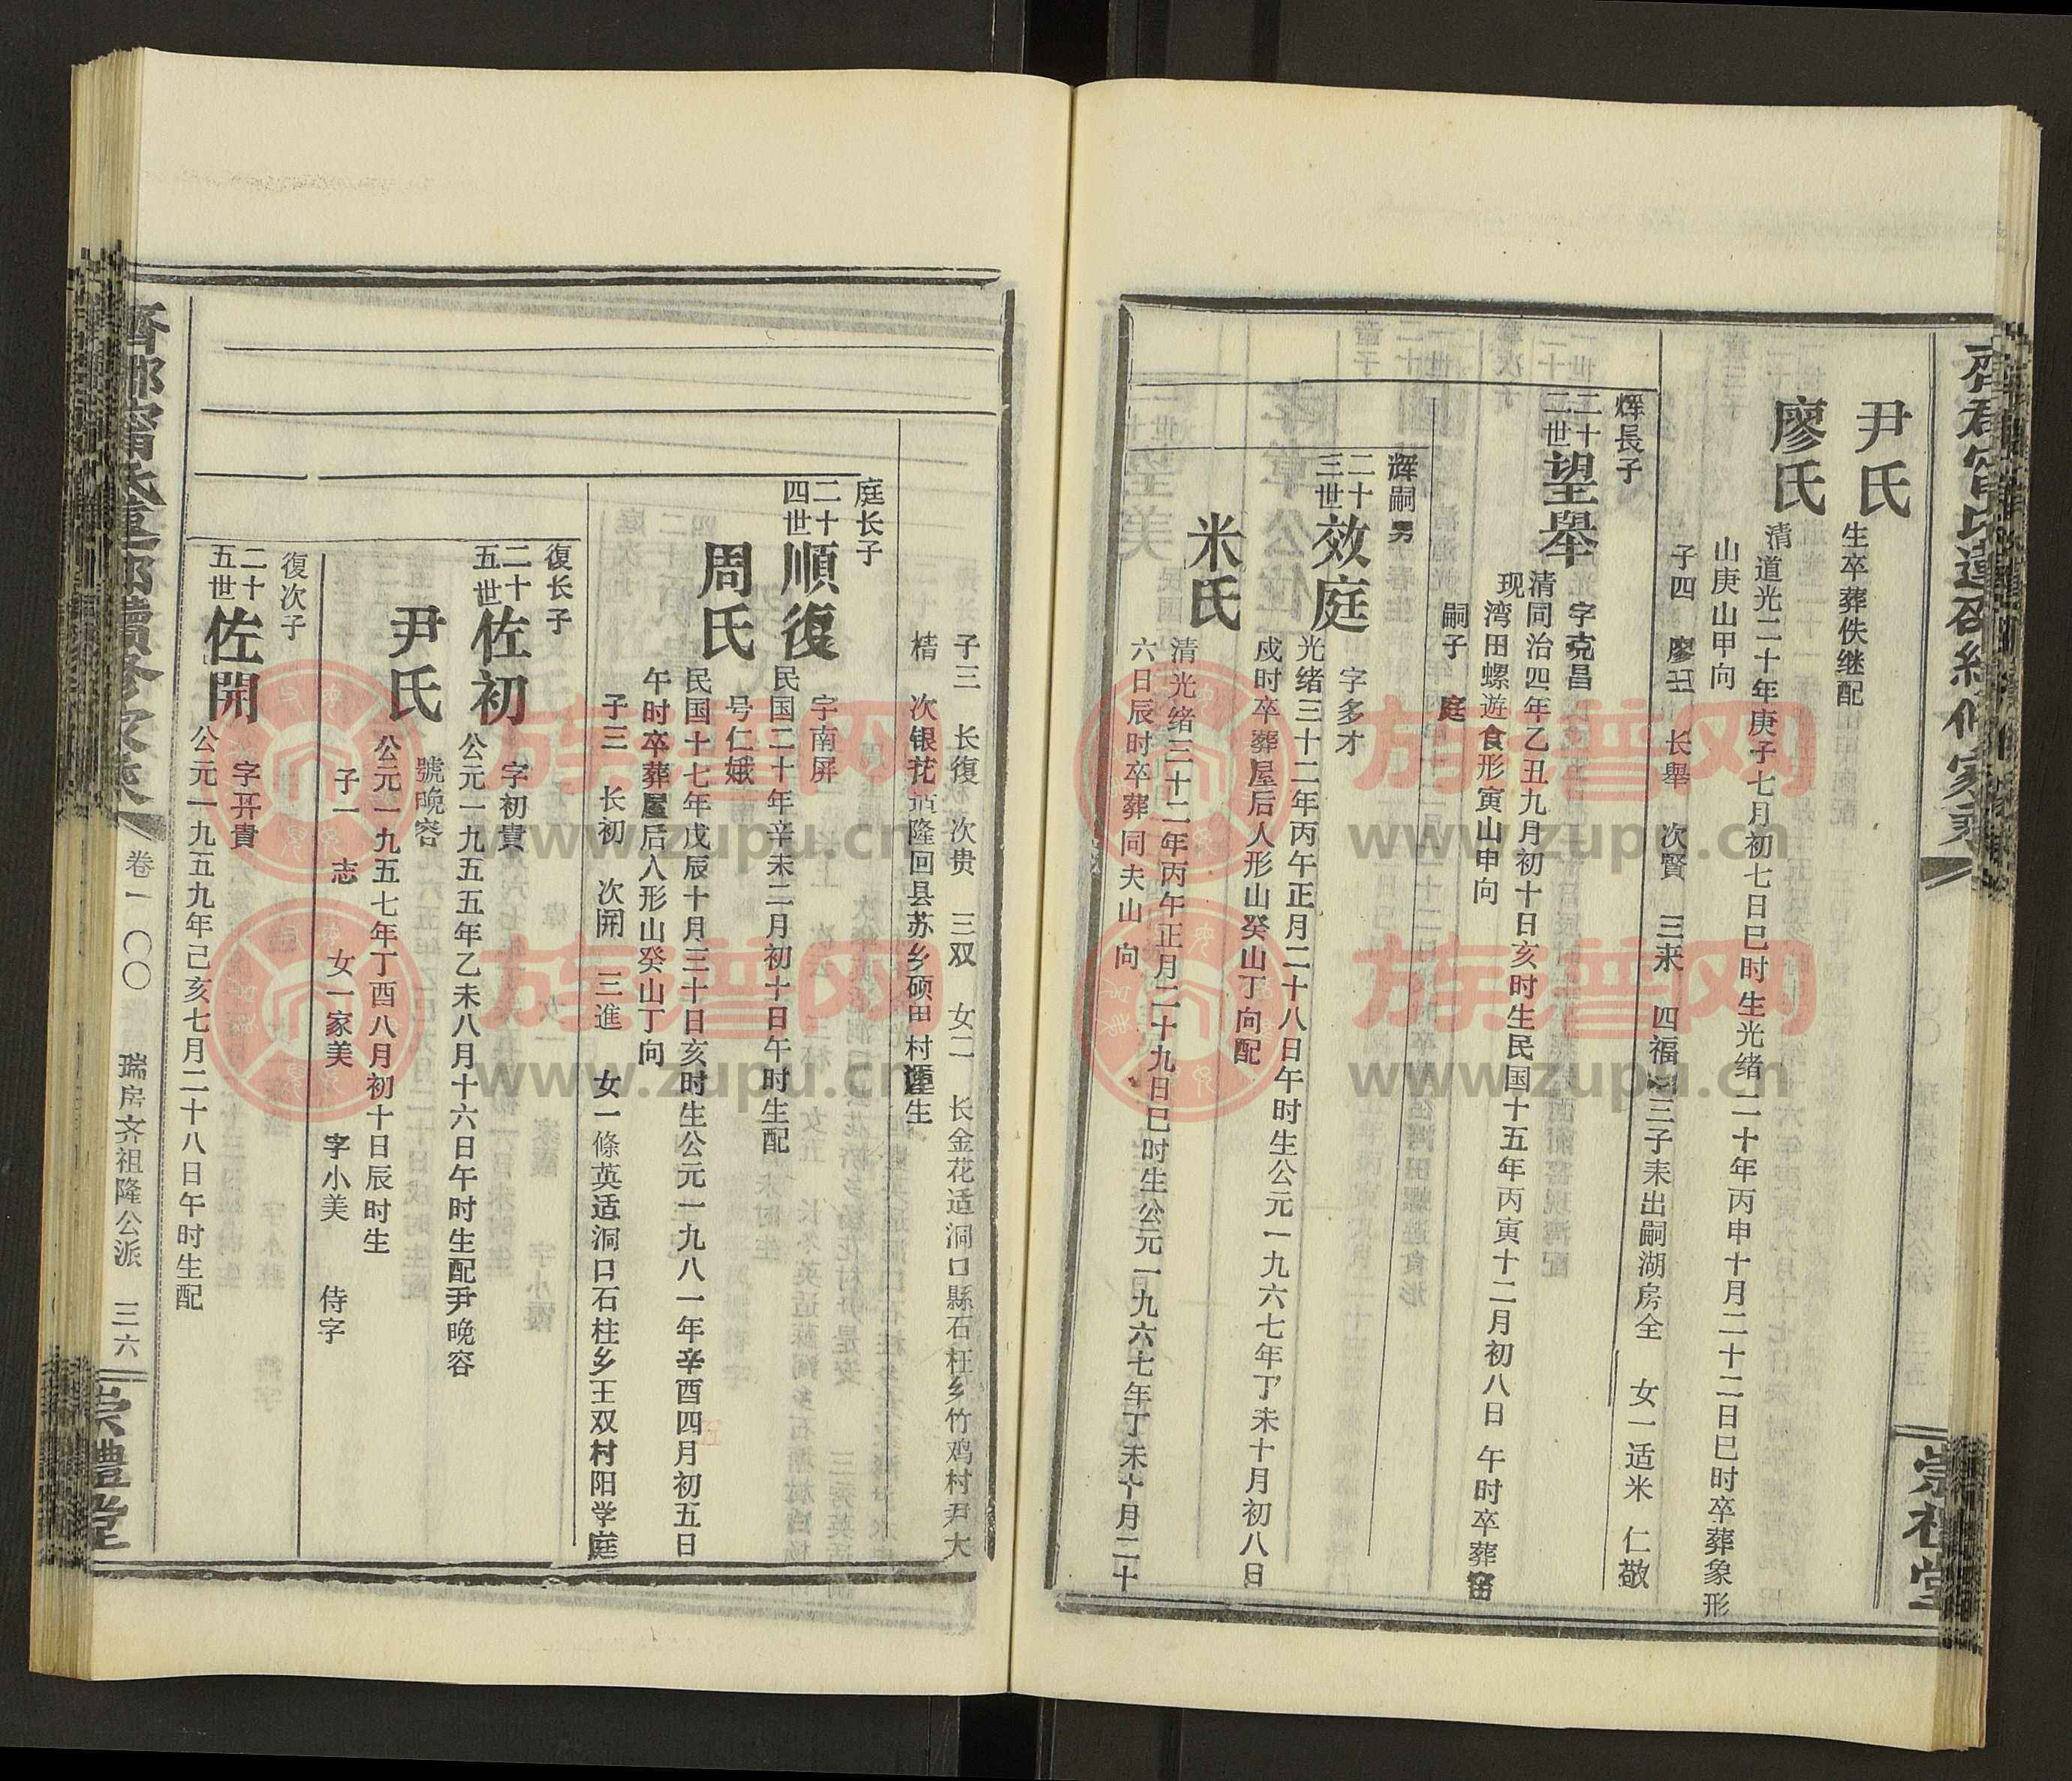 尹氏
生卒葬佚继配
廖氏
清道光二十年庚子七月初七日巳时生光绪二十年丙申十月二十二日巳时卒葬象形
山庚山甲向
子四 廖出 长舉 次賢 三来 四福 三子来出嗣湖房全 女一适米仁敬
辉長子
二十二世
望舉
字克昌
清同治四年乙丑九月初十日亥时生民国十五年丙寅十二月初八日午时卒葬窑
现湾田螺遊食形寅山申向
嗣子 庭
辉嗣男
二十三世
效庭
字多才
光绪三十二年丙午正月二十八日午时生公元一九六七年丁未十月初八日
戍时卒葬屋后人形山癸山丁向配
米氏
清光绪三十二年丙午正月二十九日巳时生公元一九六七年丁未十月二十
六日辰时卒葬同夫山向
子三 长復 次贵 三双 女二 长金花适洞口縣石枉乡竹鸡村尹大
桔 次银花适隆回县苏乡硕田村生
庭长子
二十四世
順復
字南屏
民国二十年辛未二月初十日午时生配
周氏
号仁娥
民国十七年戊辰十月三十日亥时生公元一九八一年辛酉四月初五日
午时卒葬屋后人形山癸山丁向
子三 长初 次開 三進 女一條英适洞口石柱乡王双村阳学庭
復长子
二十五世
佐初
字初貴
公元一九五五年乙未八月十六日午时生配尹晚容
尹氏
號晚容
公元一九五七年丁酉八月初十日辰时生
子一 志 女一家美 字小美 侍字
復次子
二十五世
佐開
字开貴
公元一九五九年己亥七月二十八日午时生配
卷一〇〇 瑞房齐祖隆公派 三六
崇禮堂
族谱网
www.zupu.cn
族谱网
www.zupu.cn
族谱网
www.zupu.cn
族谱网
www.zupu.cn